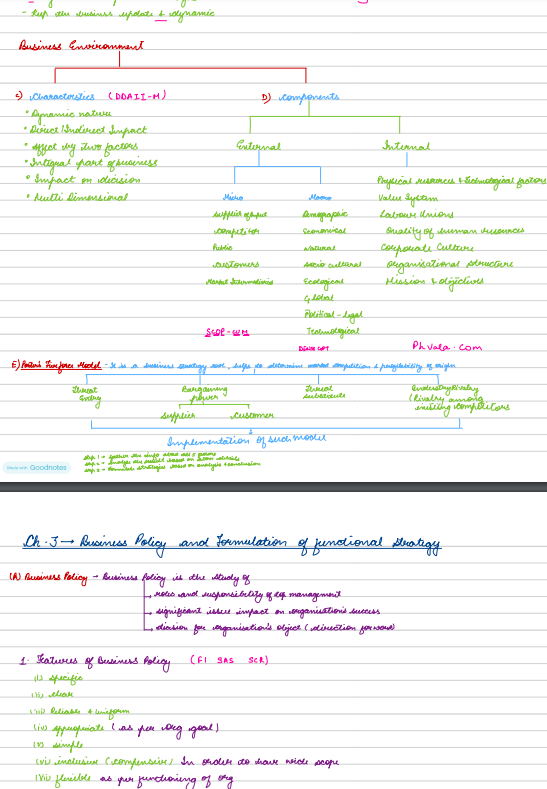 - Keep the business update & dynamic
Business Environment
C) Characteristics (DDAII-M)
D) Components
* Dynamic nature
* Direct/Indirect Impact
* Affect by Two factors
* Integral part of business
* Impact on decision
* Multi Dimensional
External
Internal
Micro
Supplier of input
Competitor
Public
Customers
Market Intermediaries
SCOP-CIM
Macro
Demographic
Economical
Natural
Socio cultural
Ecological
Global
Political-legal
Technological
Physical resources & Technological factors
Value System
Labour Unions
Quality of human resources
Corporate Culture
Organisational structure
Mission & objectives
PhVala.Com
E) Porter's Five force Model - It is a business strategy tool, helps to determine market competition & of origin
Threat Entry
Bargaining power
Threat substitutes
Industry Rivalry
(Rivalry among existing competitors
Supplier
Customer
Implementation of such model
Step 1 → gather the info about all 5 factors
Step 2 → Analyse the result based on
Step 3 → Formulate strategies based on analysis & conclusion
Made with Goodnotes
Ch-3 → Business Policy and Formulation of functional strategy
(A) Business Policy → Business Policy is the study of
→ roles and responsibility of top management
→ significant issues impact on organisation's success
→ decision for organisation's object (direction forward)
1. Features of Business Policy (FI SAS SCR)
(i) specific
(ii) clear
(iii) Reliable & uniform
(iv) appropriate (as per org goal)
(v) simple
(vi) inclusive (compensive) In order to have wide scope
(vii) flexible as per functioning of org